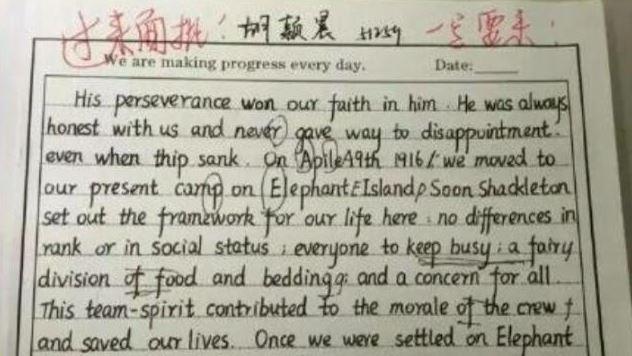 过来面批！胡颖晨 51259 一定要来！
We are making progress every day. Date:
His perseverance won our faith in him. He was always
honest with us and never gave way to disappointment.
even when thip sank. On Apile 19th 1916, we moved to
our present camp on Elephant Island, Soon Shackleton
set out the framework for our life here: no differences in
rank or in social status; everyone to keep busy; a fairy
division of food and bedding; and a concern for all.
This team-spirit contributed to the morale of the crew
and saved our lives. Once we were settled on Elephant